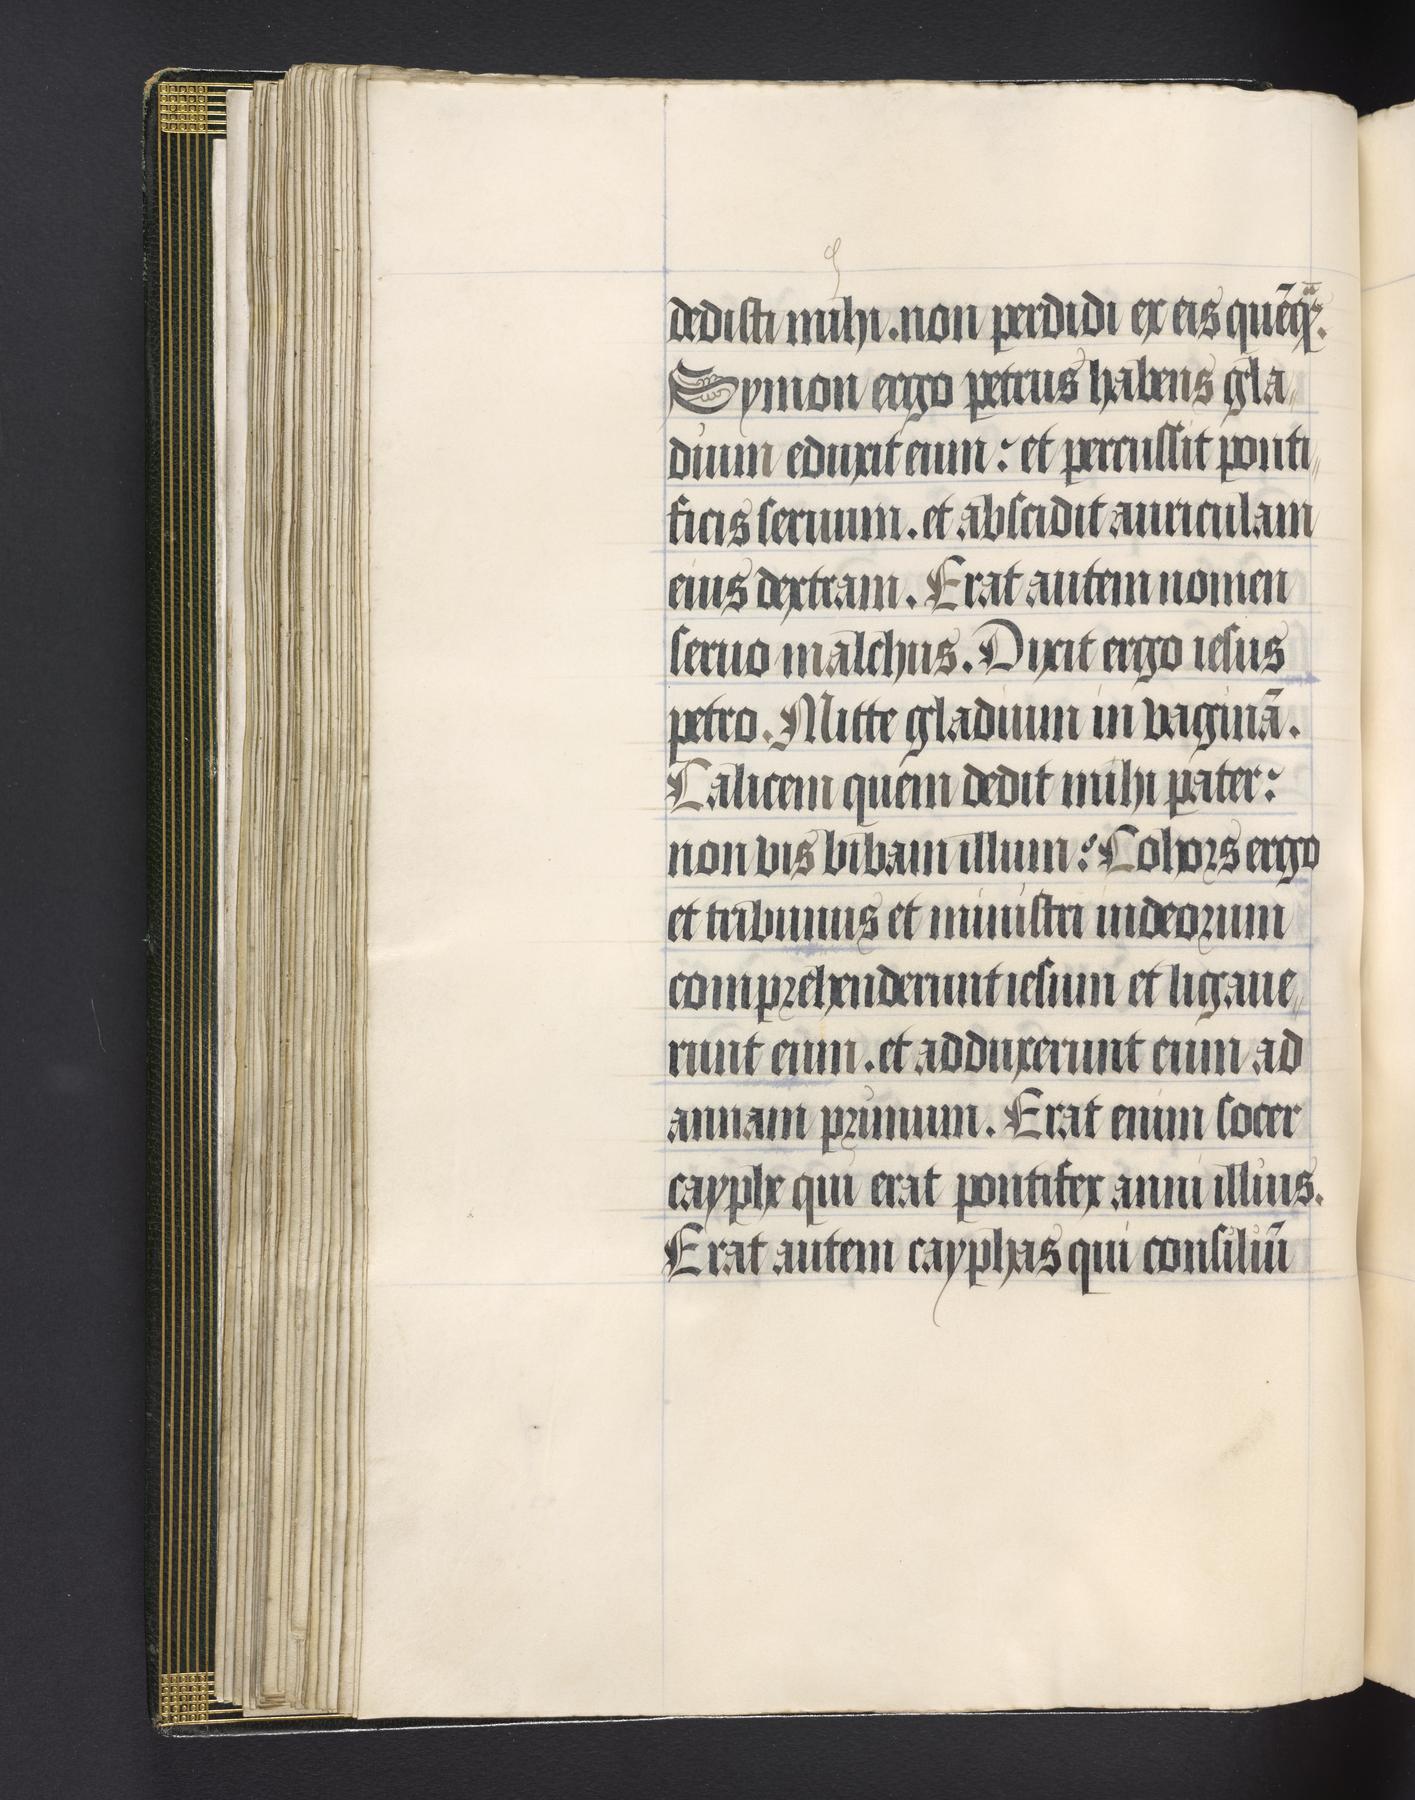 dedisti mihi. non perdidi ex eis quēq̃.
Symon ergo petrus habens gla
dium eduxit eum: et percussit ponti
ficis seruum. et abscidit auriculam
eius dextram. Erat autem nomen
seruo malchus. Dixit ergo iesus
petro. Mitte gladium in vaginā.
Calicem quem dedit mihi pater:
non vis bibam illum: Cohors ergo
et tribunus et ministri iudeorum
comprehenderunt iesum et ligaue
runt eum. et adduxerunt eum ad
annam primum. Erat enim socer
cayphe qui erat pontifex anni illius.
Erat autem cayphas qui consiliū